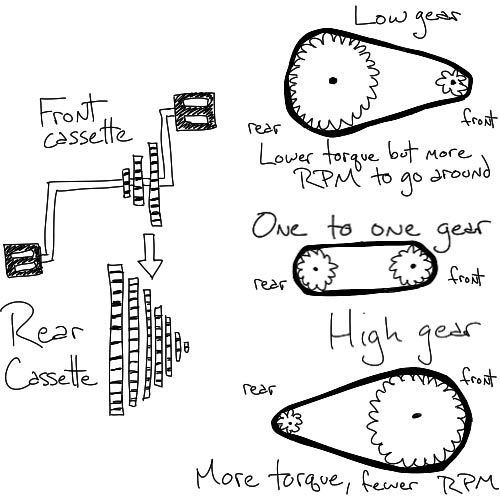 Front
cassette
Rear
Cassette
Low gear
rear
front
Lower torque but more
RPM to go around
One to one gear
rear
front
High gear
rear
front
More torque, fewer RPM